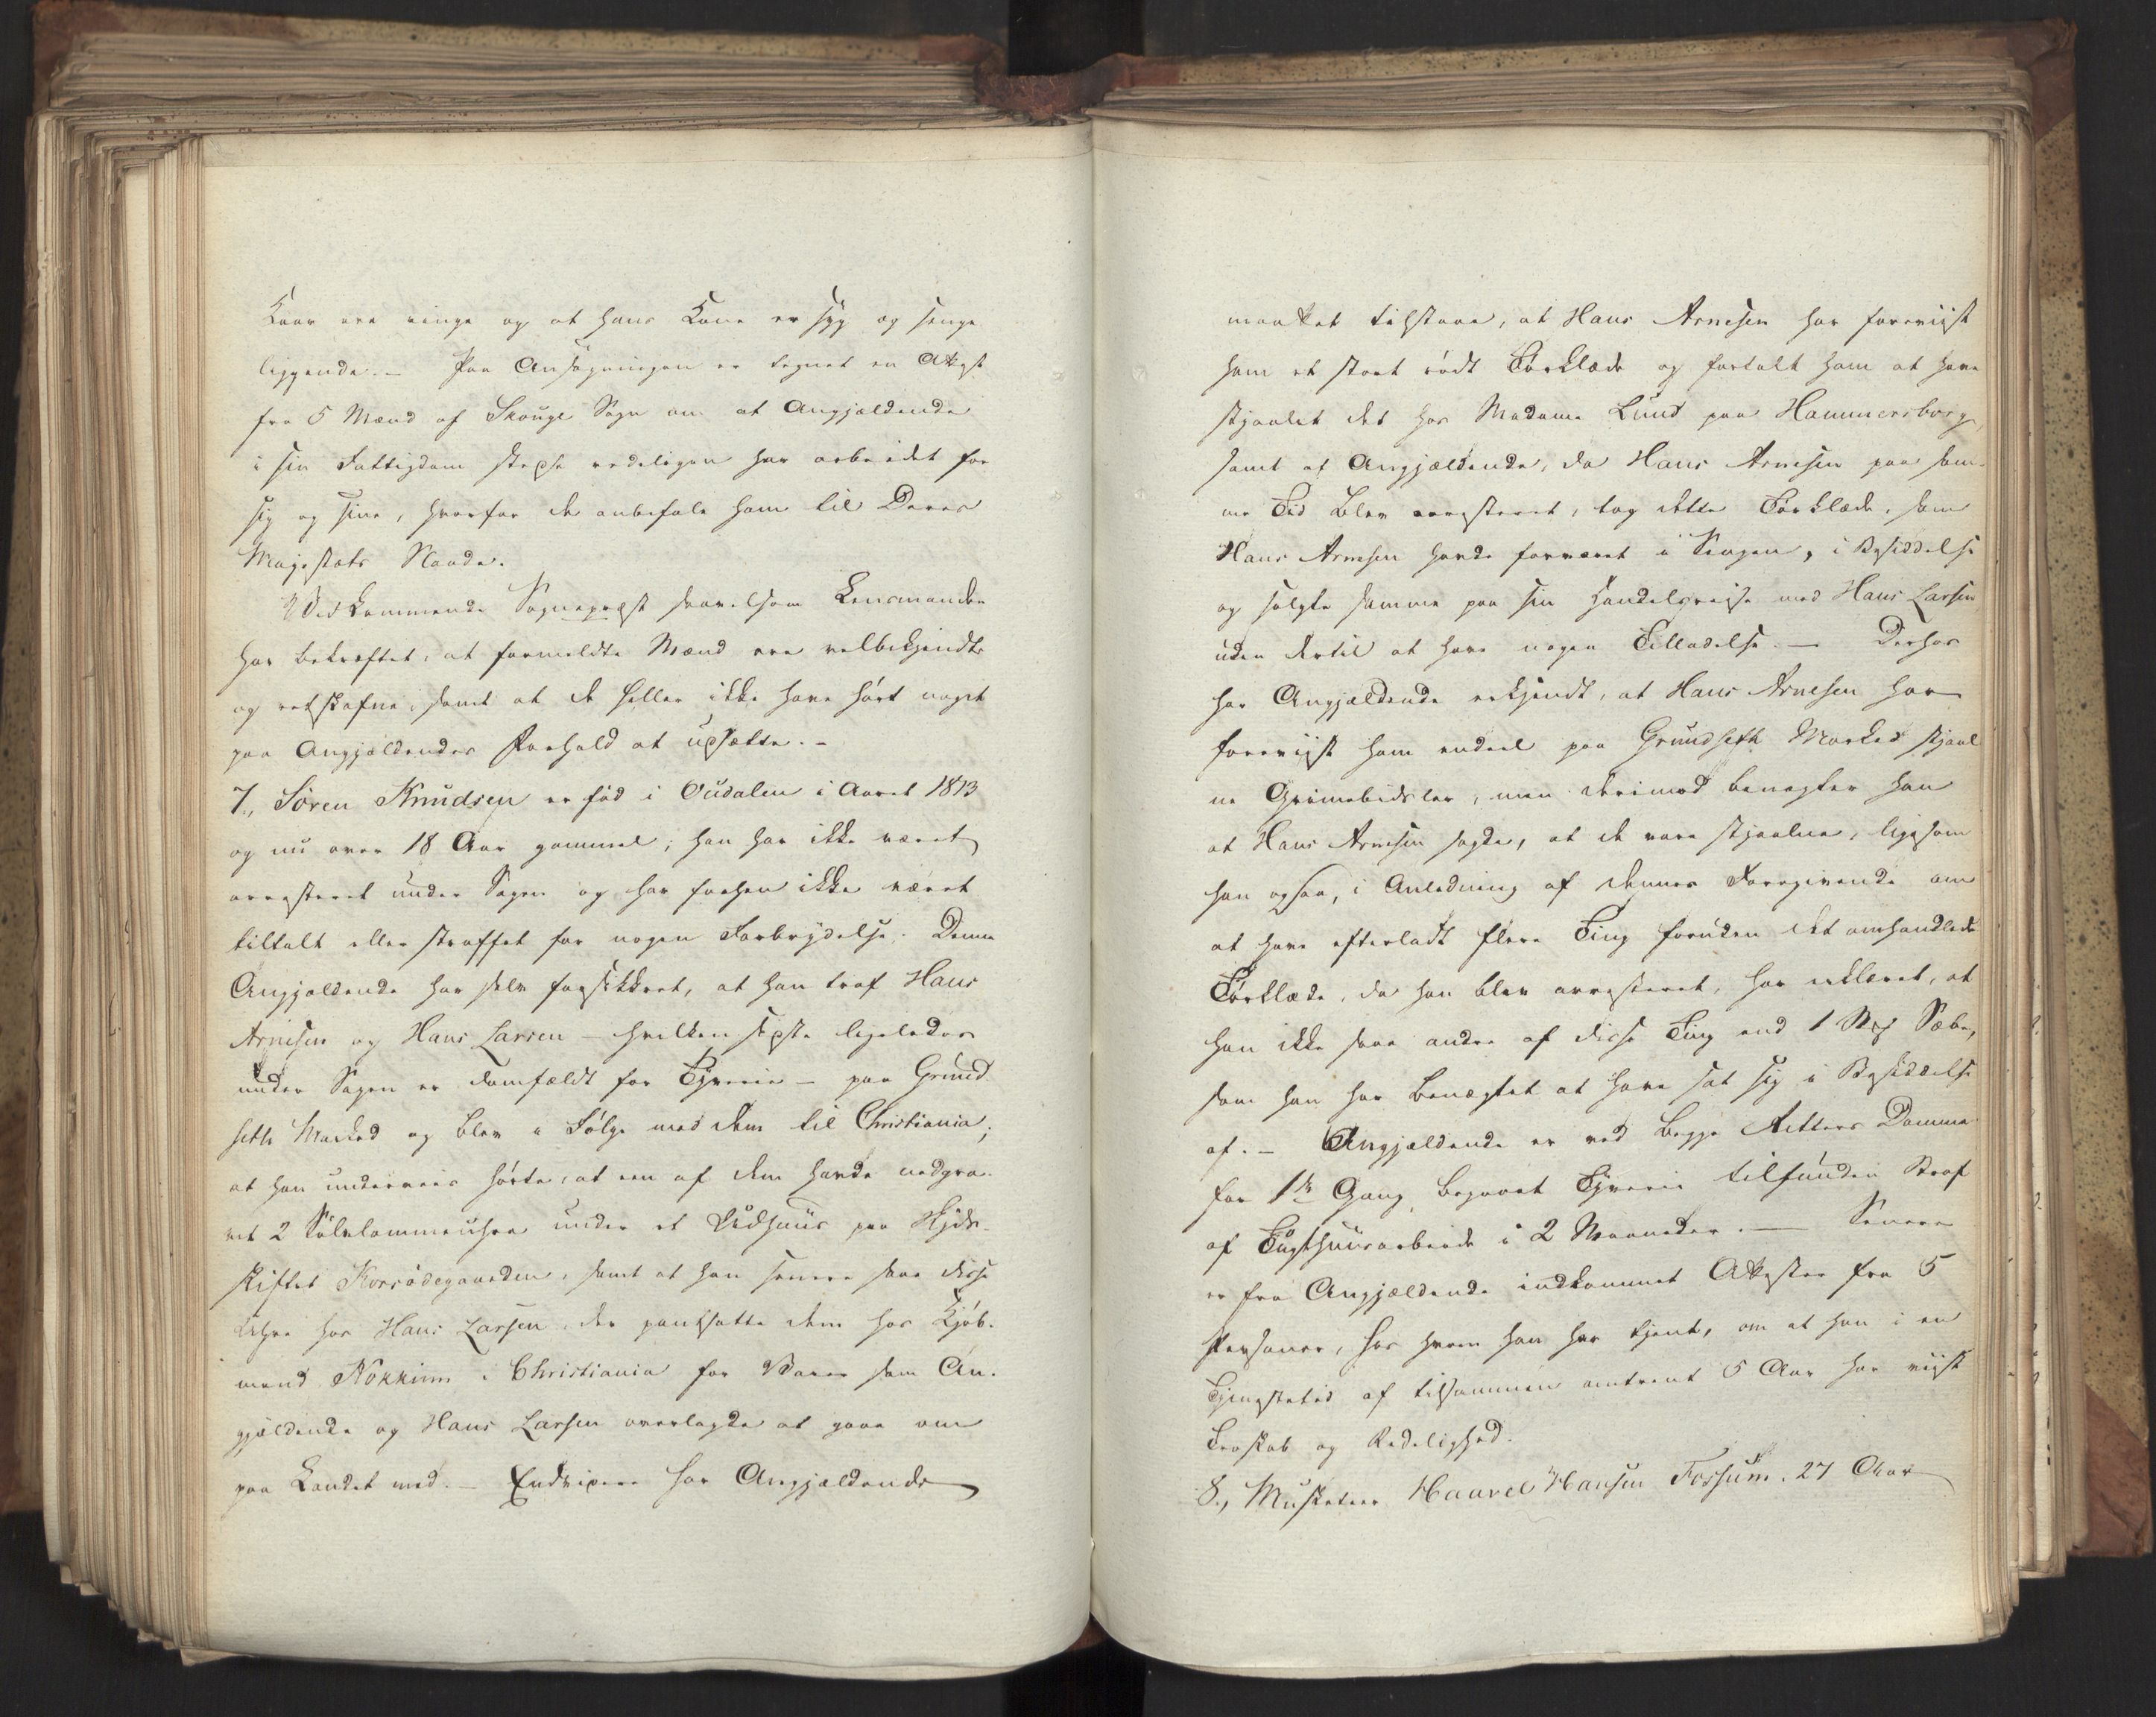 Kaar ere ringe og at hans Kone er syg og senge
liggende. – Paa Ansøgningen er tegnet en Attest
fra 5 Mænd af Skouge Sogn om at Angjældende
i sin Fattigdom stedse redeligen har arbeidet for
sig og sine, hvorfor de anbefale ham til Deres
Majestæts Naade.
Vedkommende Sognepræst saavelsom Lensmanden
har bekræftet, at formeldte Mænd ere velbekjendte
og retskafne, samt at de heller ikke have hørt noget
paa Angjældendes Forhold at udsætte. –
7., Sören Knudsen er föd i Oudalen i Aaret 1813
og nu over 18 Aar gammel; han har ikke været
arresteret under Sagen og har forhen ikke været
tiltalt eller straffet for nogen Forbrydelse. Denne
Angjældende har selv forsikkret, at han traf Hans
Arnesen og Hans Larsen – hvilken sidste ligeledes
under Sagen er domfældt for Tyverie – paa Grund
seth Marked og blev i Følge med dem til Christiania;
at han underveis hörte, at een af dem havde nedgra-
vet 2 Sölvlommeuhre under et Udhuus paa Skyds-
skiftet Korsödegaarden, samt at han senere saae disse
Uhre hos Hans Larsen, der pantsatte dem hos Kjöb-
mand Nokkim i Christiania for Varer som An-
gjældende og Hans Larsen overlagde at gaae om
paa Landet med. – Endvidere har Angjældende
maattet tilstaae, at Hans Arnesen har foreviist
ham et stort rödt Törklæde og fortalt ham at have
stjaalet det hos Madame Lund paa Hammersborg,
samt at Angjældende, da Hans Arnesen paa sam-
me Tid blev arresteret, tog dette Törklæde, som
Hans Arnesen havde forvaret i Sengen, i Besiddelse
og solgte samme paa sin Handelsreise med Hans Larsen
uden dertil at have nogen Tilladelse. – Derhos
har Angjældende erkjendt, at Hans Arnesen har
foreviist ham endeel paa Grundseth Marked stjaal
ne Grimebidsler, men derimod benegter han
at Hans Arnesen sagde, at de vare stjaalne, ligesom
han ogsaa, i Anledning af dennes Foregivende om
at have efterladt flere Ting foruden det omhandlede
Törklæde, da han blev arresteret, har erklæret, at
han ikke saae andre af disse Ting end 1 Sæbe,
som han har benægtet at have sat sig i Besiddelse
af. – Angjældende er ved begge Retters Domme
for 1ste Gang begaaet Tyverie tilfunden Straf
af Tugthuusarbeide i 2 Maaneder. – Senere
er fra Angjældende indkommet Attester fra 5
Personer, hos hvem han har tjent, om at han i en
Tjenestetid af tilsammen omtrent 5 Aar har viist
Troskab og Redelighed.
8., Musketeer Haavel Hansen Fossum, 27 Aar